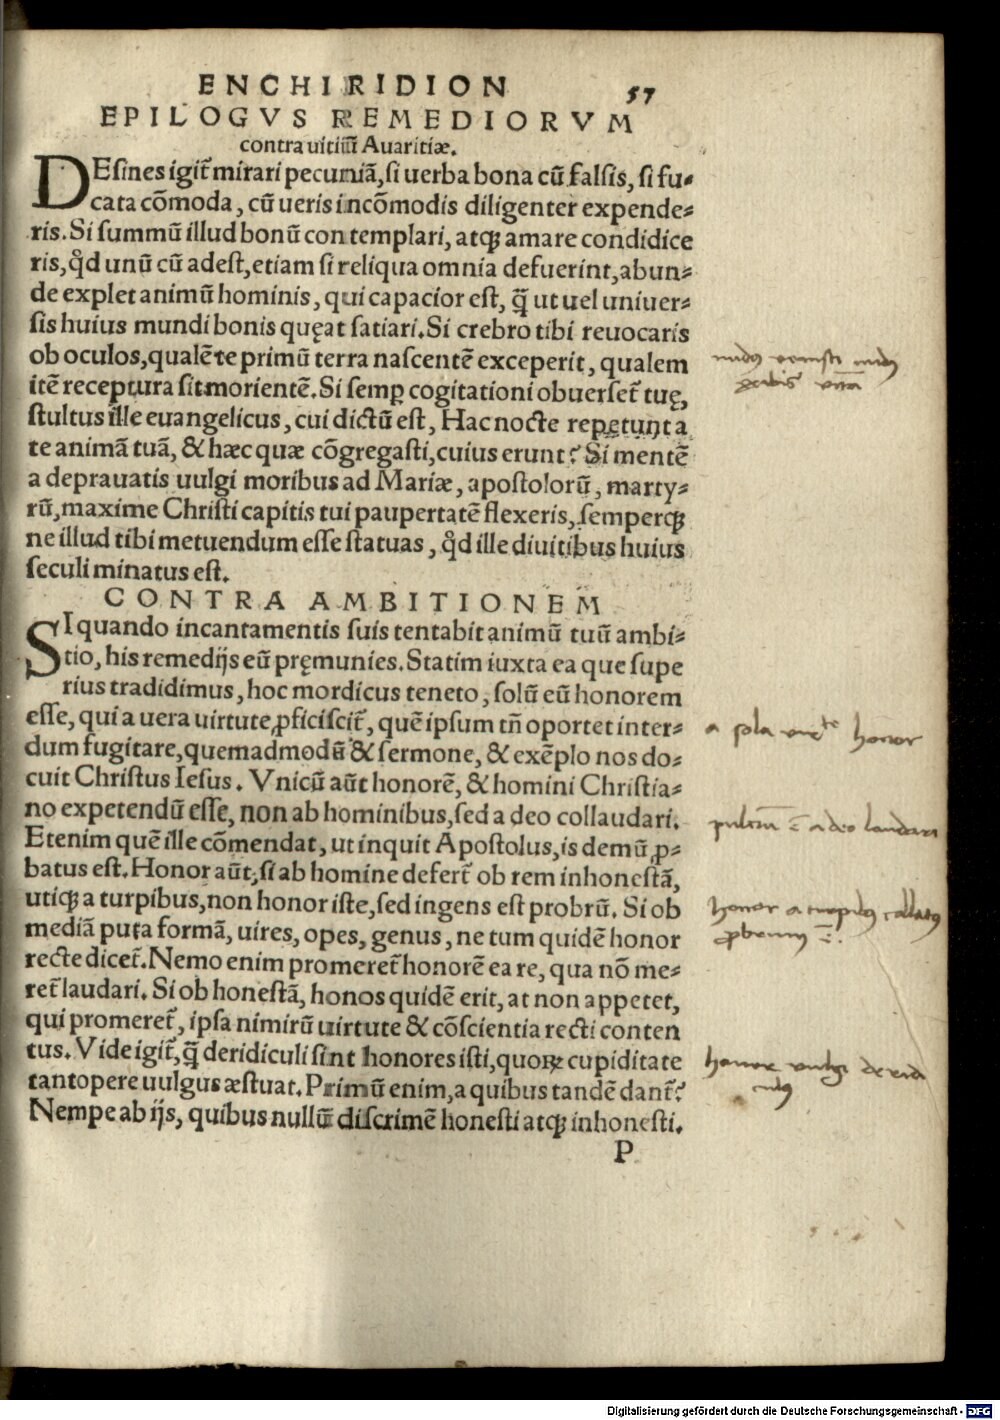 ENCHIRIDION 57
EPILOGVS REMEDIORVM
contra uitiũ Auaritiæ.
DEsines igit᷑ mirari pecuniã, si uerba bona cũ falsis, si fu-
cata cõmoda, cũ ueris incõmodis diligenter expende-
ris. Si summũ illud bonũ contemplari, atq; amare condidice
ris, qđ unũ cũ adest, etiam si reliqua omnia defuerint, abun-
de explet animũ hominis, qui capacior est, q̃ ut uel uniuer-
sis huius mundi bonis quęat satiari. Si crebro tibi reuocaris
ob oculos, qualẽ te primũ terra nascentẽ exceperit, qualem
itẽ receptura sit morientẽ. Si semꝑ cogitationi obuerset᷑ tuę,
stultus ille euangelicus, cui dictũ est, Hac nocte repetunt a
te animã tuã, & hæc quæ cõgregasti, cuius erunt? Si mentẽ
a deprauatis uulgi moribus ad Mariæ, apostolorũ, marty-
rũ, maxime Christi capitis tui paupertatẽ flexeris, semperq;
ne illud tibi metuendum esse statuas, qđ ille diuitibus huius
seculi minatus est.
CONTRA AMBITIONEM
SI quando incantamentis suis tentabit animũ tuũ ambi-
tio, his remedijs eũ pręmunies. Statim iuxta ea que supe
rius tradidimus, hoc mordicus teneto, solũ eũ honorem
esse, qui a uera uirtute ꝓficiscit᷑, quẽ ipsum tñ oportet inter-
dum fugitare, quemadmodũ & sermone, & exẽplo nos do-
cuit Christus Iesus. Vnicũ aũt honorẽ, & homini Christia-
no expetendũ esse, non ab hominibus, sed a deo collaudari.
Etenim quẽ ille cõmendat, ut inquit Apostolus, is demũ ꝓ-
batus est. Honor aũt, si ab homine defert᷑ ob rem inhonestã,
utiq; a turpibus, non honor iste, sed ingens est probrũ. Si ob
mediã puta formã, uires, opes, genus, ne tum quidẽ honor
recte dicet᷑. Nemo enim promeret᷑ honorẽ ea re, qua nõ me-
ret᷑ laudari. Si ob honestã, honos quidẽ erit, at non appetet,
qui promeret᷑, ipsa nimirũ uirtute & cõscientia recti conten
tus. Vide igit᷑, q̃ deridiculi sint honores isti, quoꝝ cupiditate
tantopere uulgus æstuat. Primũ enim, a quibus tandẽ dant᷑?
Nempe ab ijs, quibus nullũ discrimẽ honesti atq; inhonesti.
P
nudꝰ venisti nudꝰ
a sola virtute honor
pulcrũ ẽ a deo laudari
honor a turpibꝰ collatꝰ
ꝓbrum ẽ.
honor vulgi derid
culꝰ
Digitalisierung gefördert durch die Deutsche Forschungsgemeinschaft - DFG